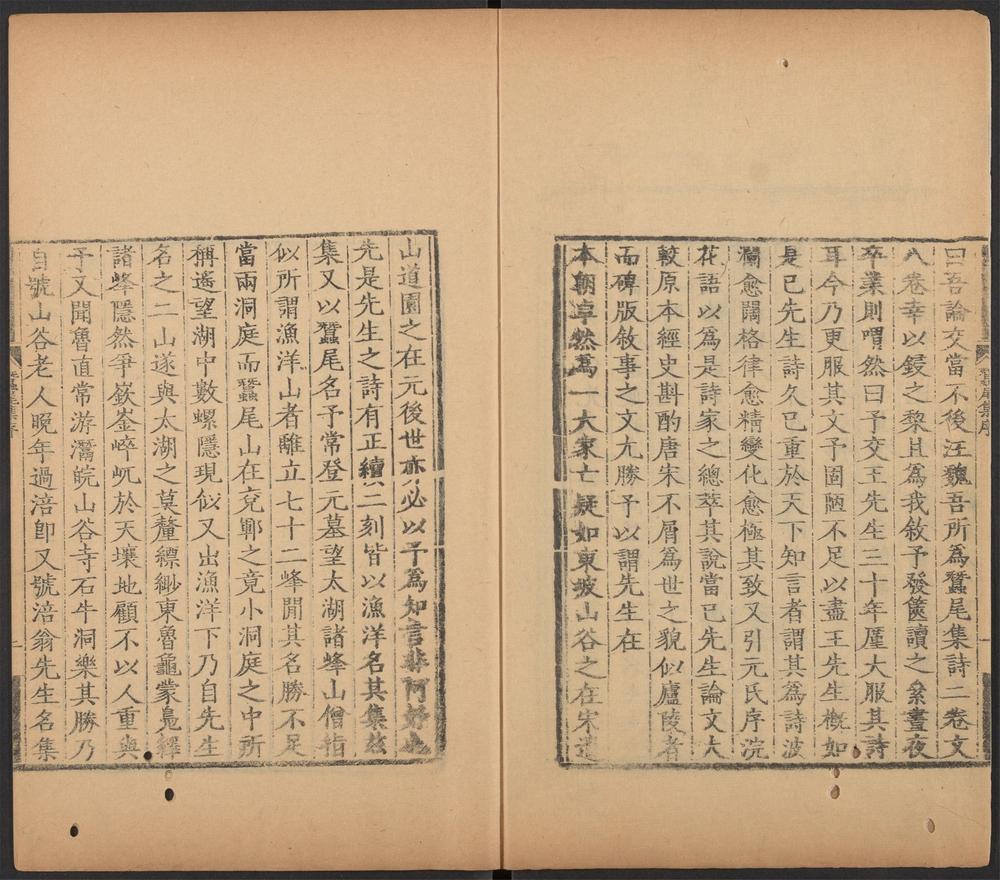 蠶尾集序
曰吾論交當不後汪魏吾所爲蠶尾集詩二卷文
八卷幸以鋟之棃且爲我敘予發篋讀之絫晝夜
卒業則喟然曰予交王先生三十年厪大服其詩
耳今乃更服其文予固陋不足以盡王先生槪如
是已先生詩久已重於天下知言者謂其爲詩波
瀾愈闊格律愈精變化愈極其致又引元氏序浣
花語以爲是詩家之總萃其說當已先生論文大
較原本經史斟酌唐宋不屑爲世之貌似廬陵者
而碑版敘事之文尢勝予以謂先生在
本朝卓然爲一大家亡疑如東坡山谷之在宋遺
山道園之在元後世亦必以予爲知言非阿好也
先是先生之詩有正續二刻皆以漁洋名其集兹
集又以蠶尾名予常登元墓望太湖諸峰山僧指
似所謂漁洋山者雕立七十二峰閒其名勝不足
當兩洞庭而蠶尾山在兗鄆之竟小洞庭之中所
稱遙望湖中數螺隱現似又出漁洋下乃自先生
名之二山遂與太湖之莫釐縹緲東魯龜蒙鳧繹
諸峰隱然爭嶔崟崪屼於天壤地顧不以人重與
予又聞魯直常游灊皖山谷寺石牛洞樂其勝乃
自號山谷老人晚年過涪卽又號涪翁先生名集
蠶尾集序
二